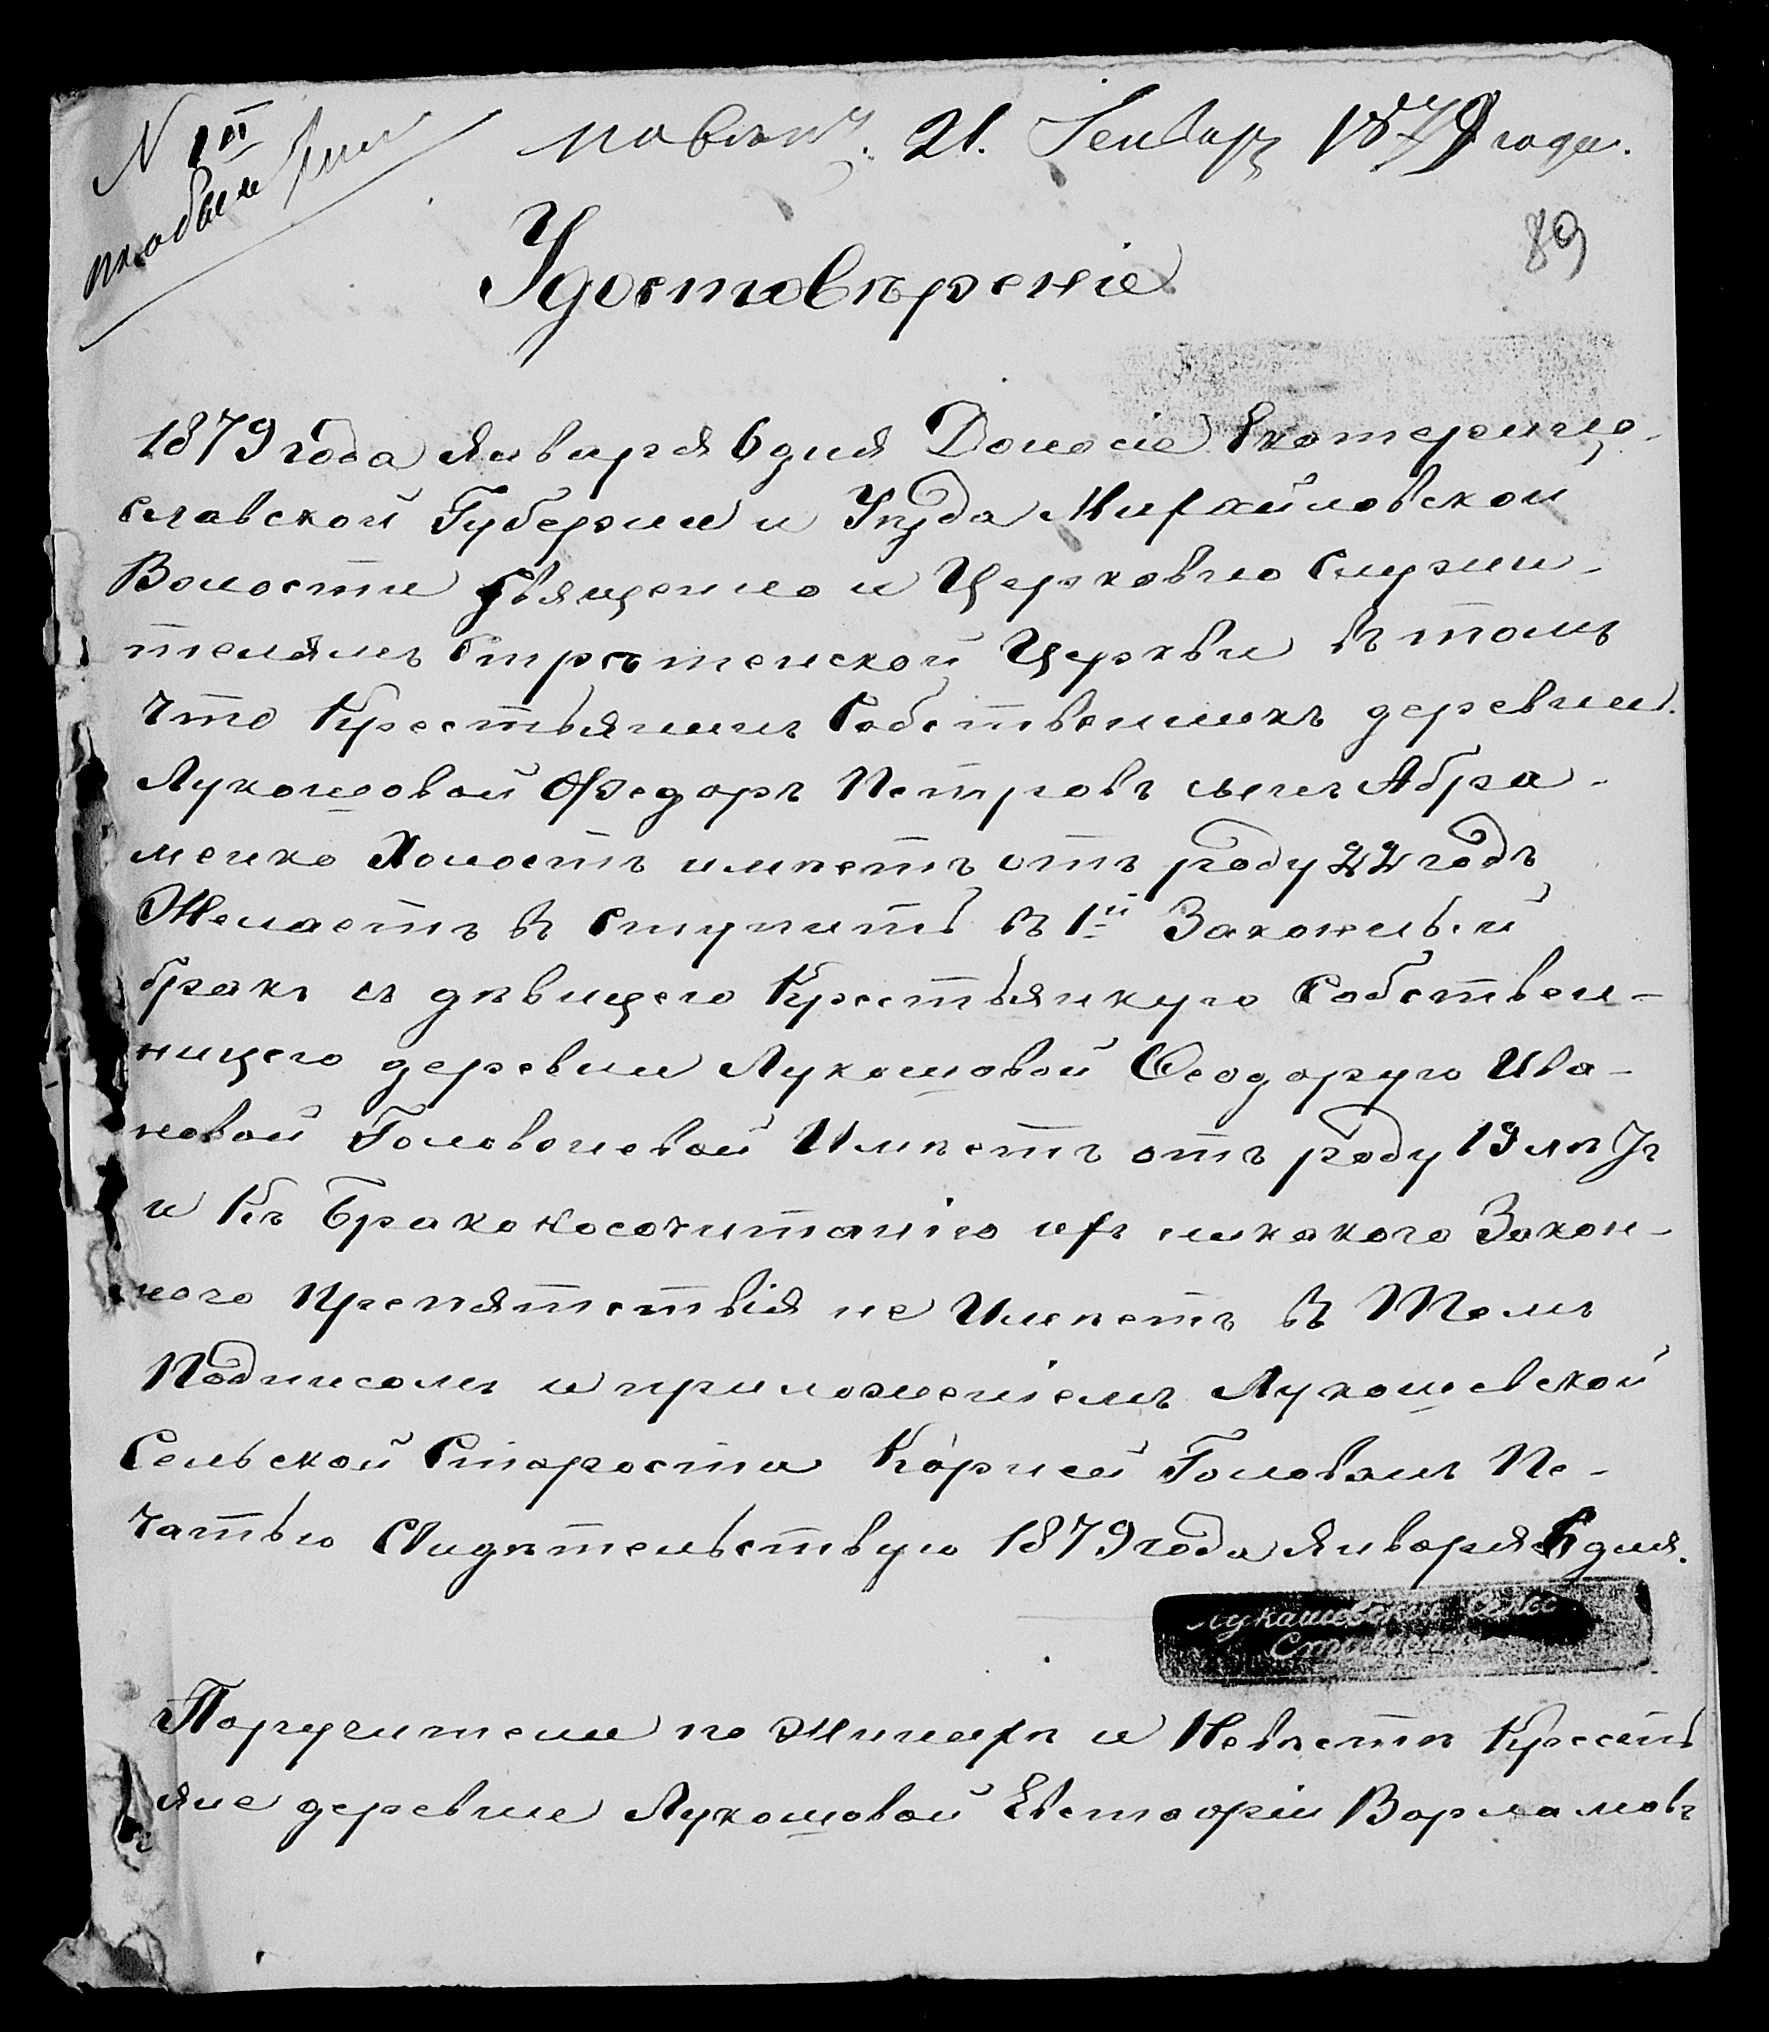 N 1й
21. Генваря 1879 года.
89
Удостовѣреніе
1879 года Января 6 дня Доносіе Екотерино-
славской Губернии и Уѣзда Михайловской
Волости Священно и Церковно Служи-
телямъ Стрѣтенской Церкви въ томъ
что Крестьянинъ Собственникъ деревни
Лукошовой Федоръ Петровъ сынъ Абра-
менко Холостъ имѣетъ отъ роду 22 годъ
Желаетъ в ступить в 1й Законный
бракъ съ дѣвицею Крестьянкую Собствен-
ницею деревни Лукошовой Феодорую Ива-
новой Головоневой Имѣетъ отъ роду 19 лѣтъ
и Къ Бракокосочитанію ихъ никакого Закон-
ного Препятствія не Имѣетъ въ Томъ
Подписомъ и приложеніемъ Лукошевской
Сельской Старости Корней Головань Пе-
чатью Свидѣтельствую 1879 года Января 6 дня.
Лукашевский Сель
Поручители по Жинихѣ и Невѣстѣ Кресть
яне деревне Лукошовой Евстафій Ворламовъ